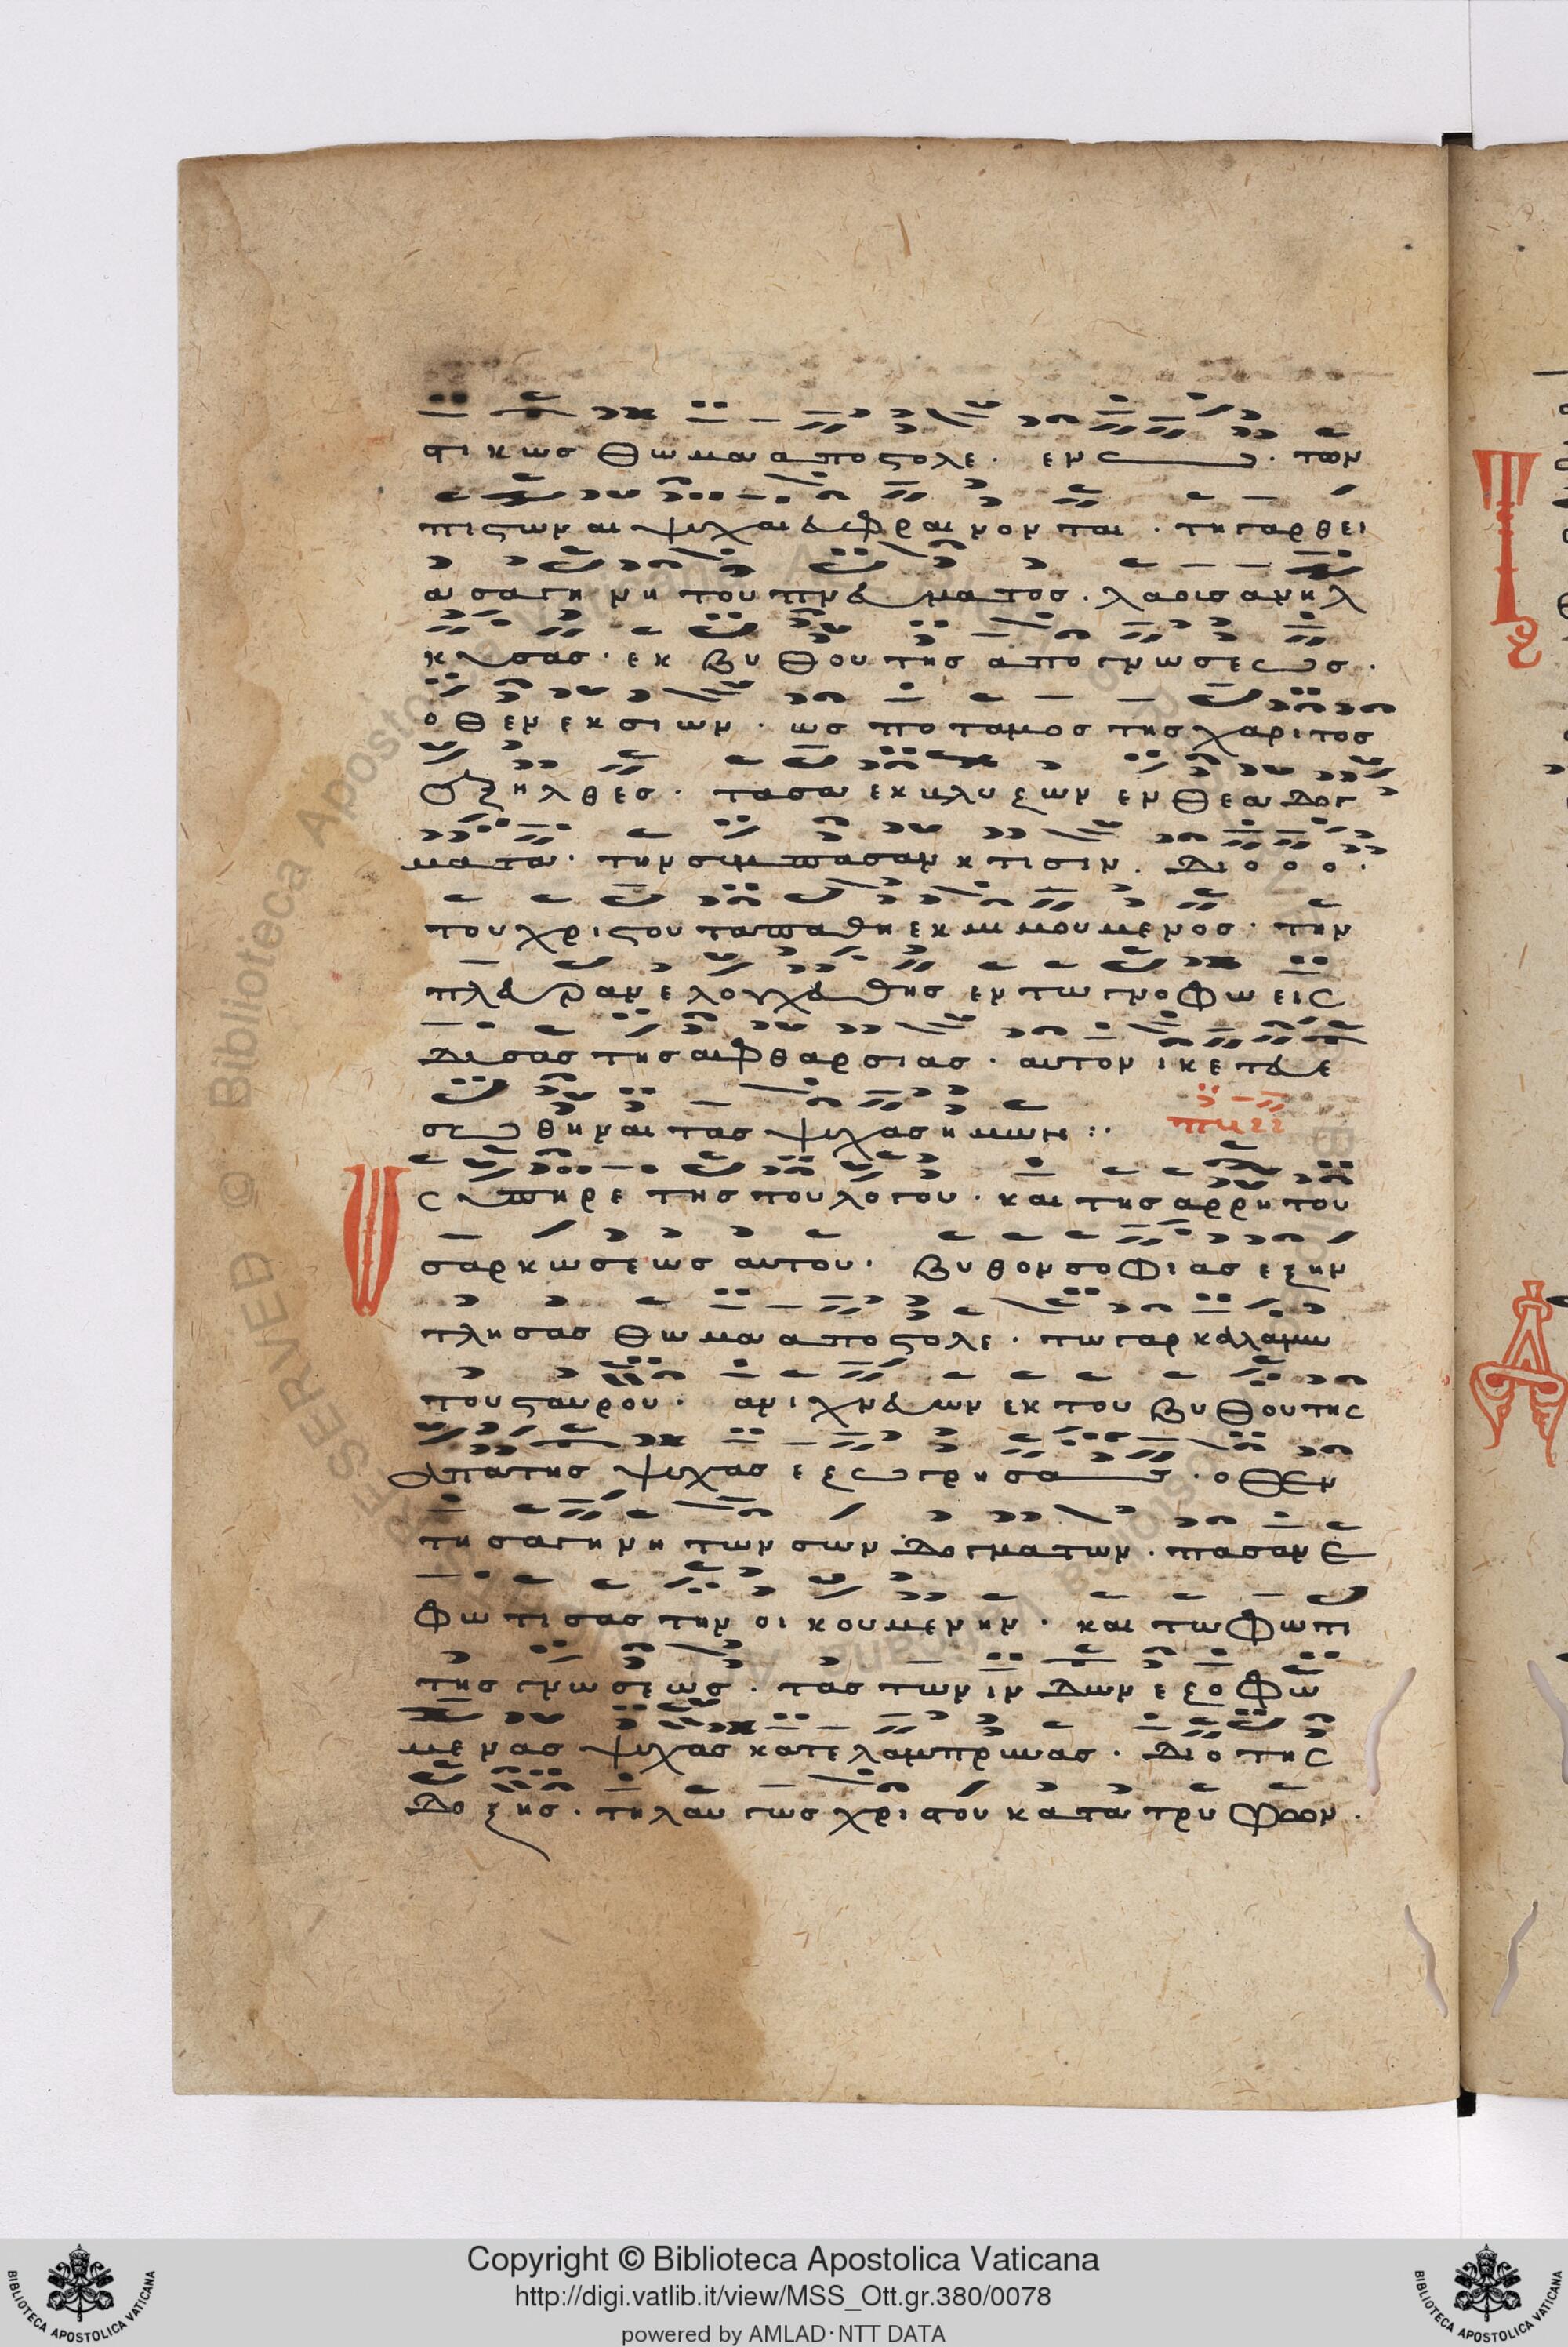 τικωσ θωμα αποστολε · εν σοι · των
πιστων αι ψυχαι ευφραινονται · τη γαρ θει
α σαγηνη του πνευματοσ · λαοισ ανηλ
κυσασ · εκ βυθου τησ απο γνωσεωσ ·
οθεν εκ σιων · ωσ ποταμοσ τησ χαριτοσ
εξηλθεσ · τα σα εκπλυζων ενθεα δογ
ματα · την σιμπασαν κτισιν · διο ο ο ·
του χριστου τα παθη εκμιμουμενοσ · την
πλευραν ελογχευθησ εν τω γνοφω εισ
δισασ τησ αφθαρσιασ · αυτον ικετευε
σωθηναι τασ ψυχασ ημων :·
πλ β
Υ
ς υπηρετησ του λογου · και τησ αρρητου
σαρκωσεωσ αυτου · βυθον σοφιασ εζην
τλησασ θωμα αποστολε · τω γαρ καλαμω
του σταυρου · ανιχνευων εκ του βυθου τησ
απατησ ψυχασ εζωγρησασ · οθεν
τη σαγηνη των σων δογματων · πασαν ε
φωτισασ την οικουμενην · και τω φωτι
τησ γνωσεωσ · τασ των ινδων εζοφω
μενασ ψυχασ κατελαμπρυνασ · διο τησ
δοξησ · τηλαυγωσ χριστου κατατρυφων ·
Copyright © Biblioteca Apostolica Vaticana
http://digi.vatlib.it/view/MSS_Ott.gr.380/0078
powered by AMLAD·NTT DATA